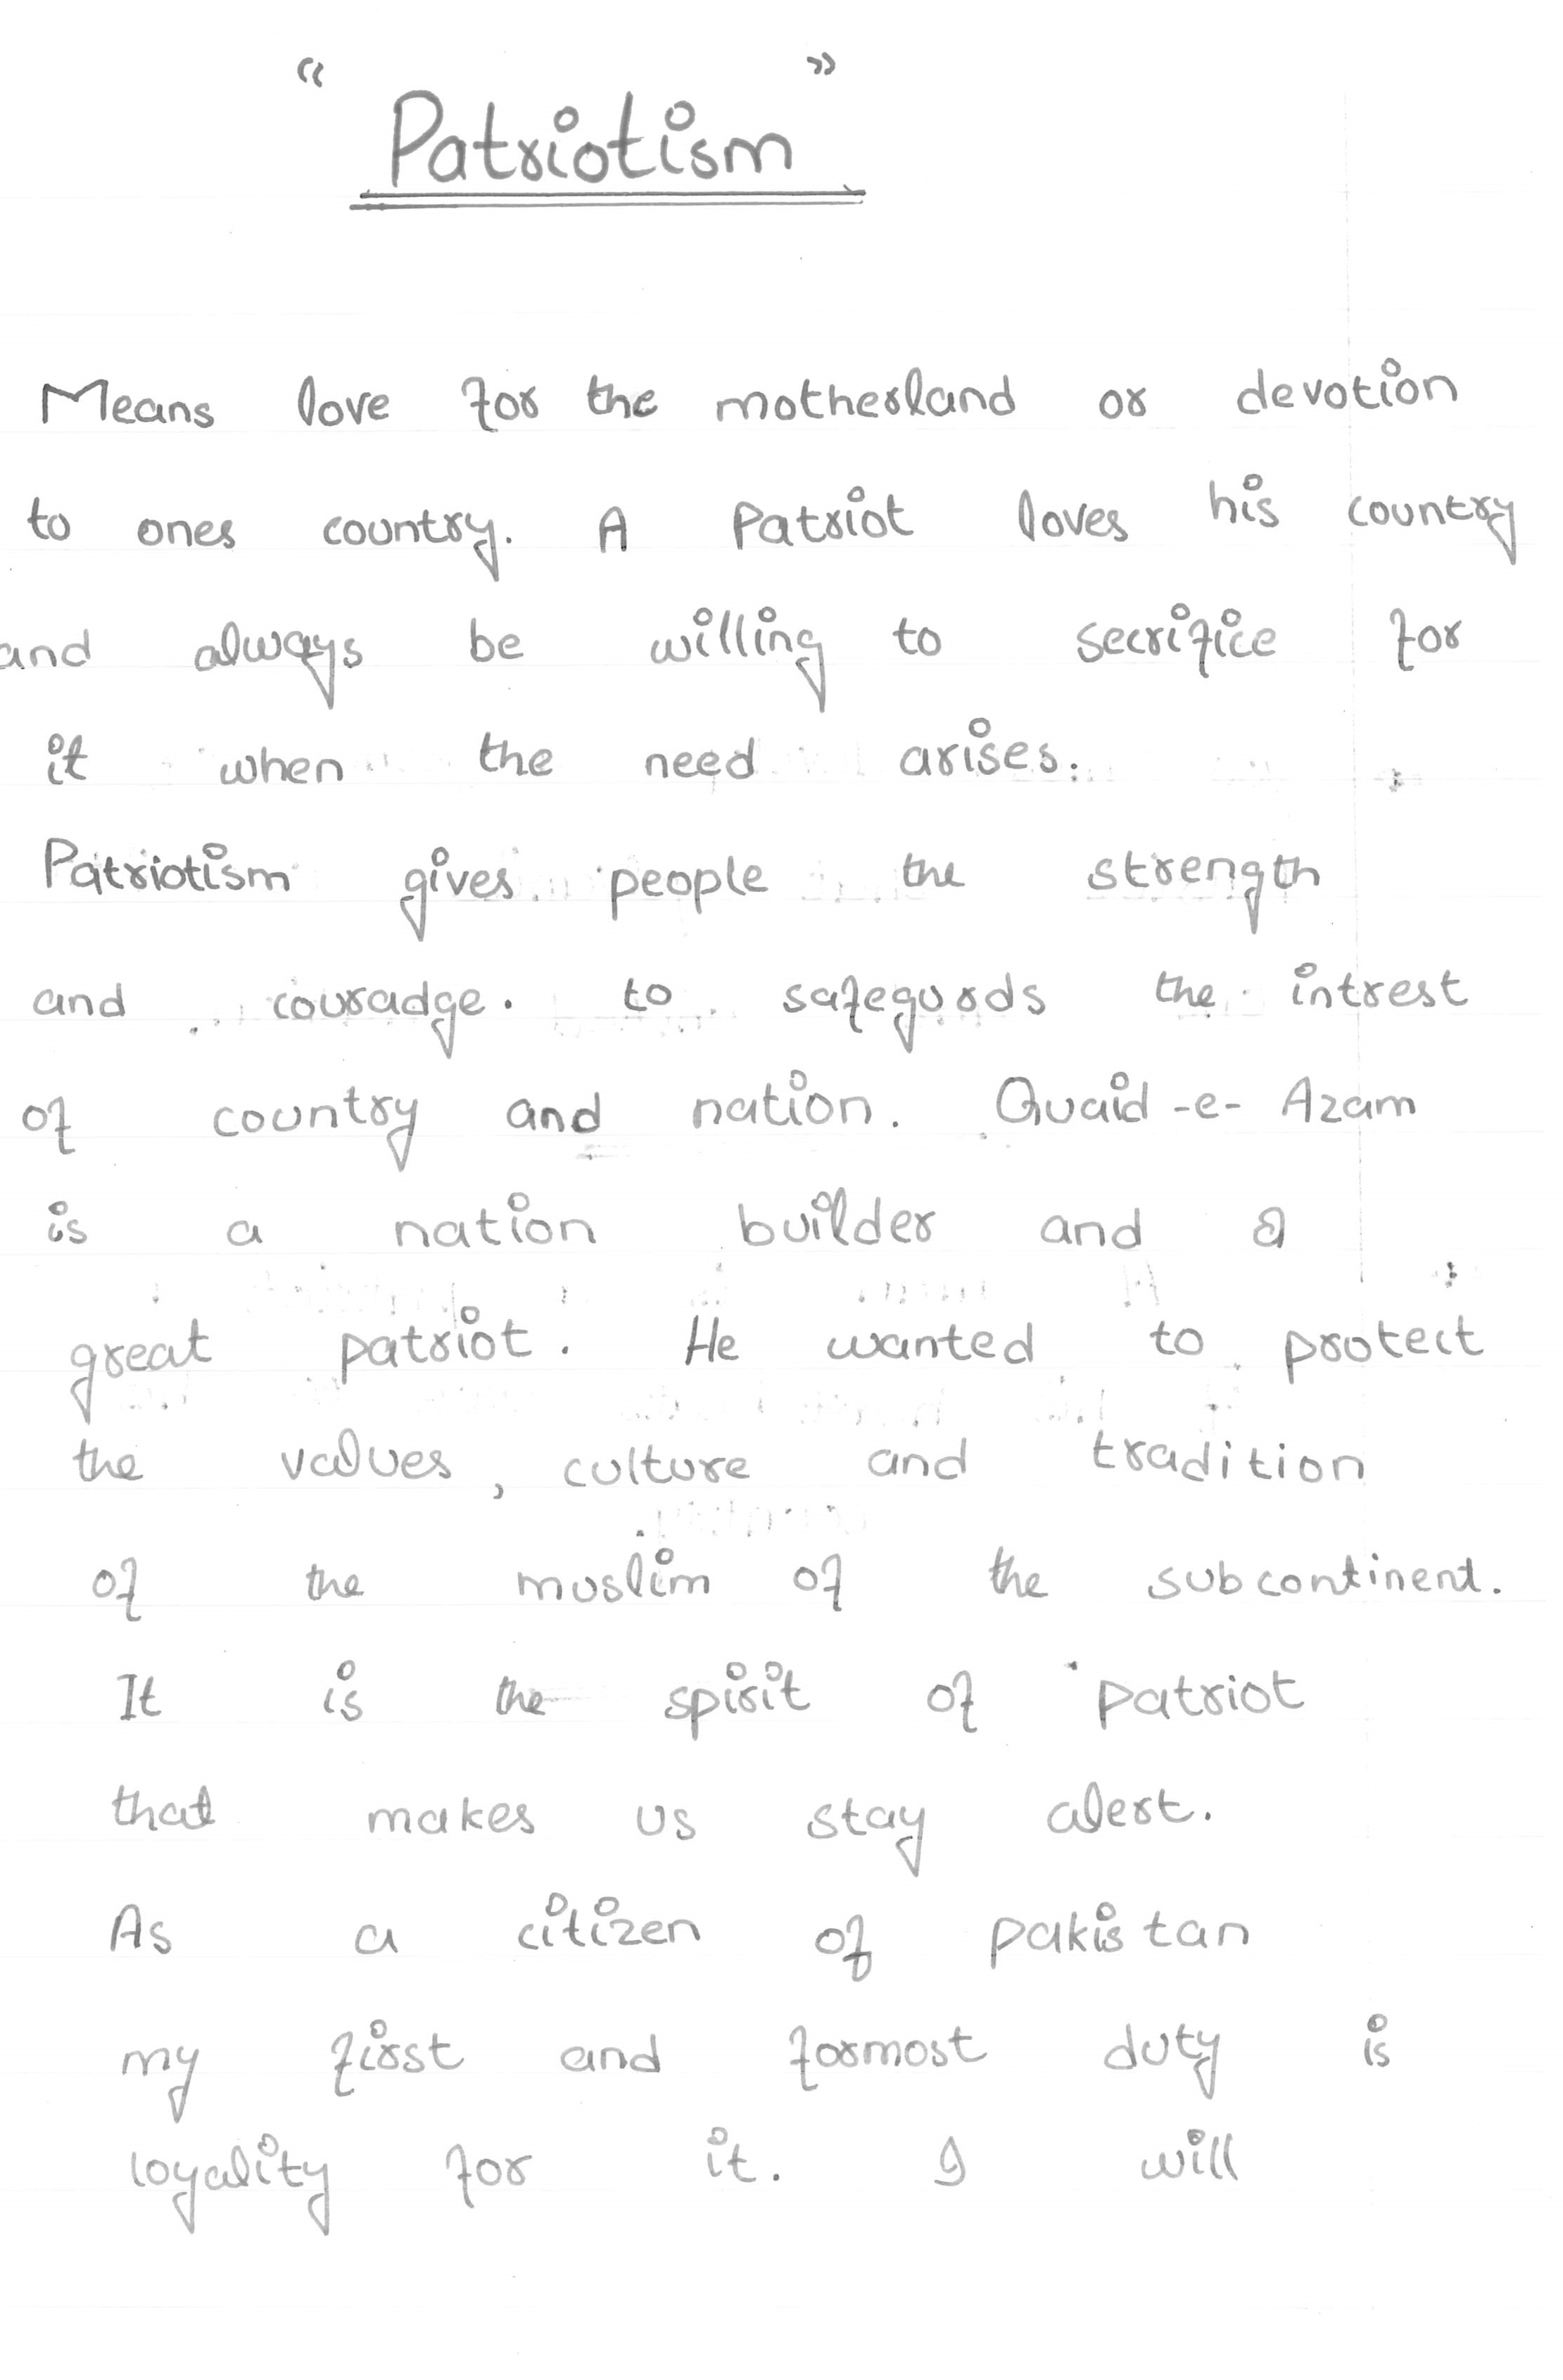 “ Patriotism ”
Means love for the motherland or devotion
to ones country. A Patriot loves his country
and always be willing to secrifice for
it when the need arises.
Patriotism gives people the strength
and couradge. to safegurds the intrest
of country and nation. Quaid-e-Azam
is a nation builder and a
great patriot. He wanted to protect
the values, culture and tradition
of the muslim of the subcontinent.
It is the spirit of patriot
that makes us stay alert.
As a citizen of pakistan
my first and formost duty is
loyality for it. I will